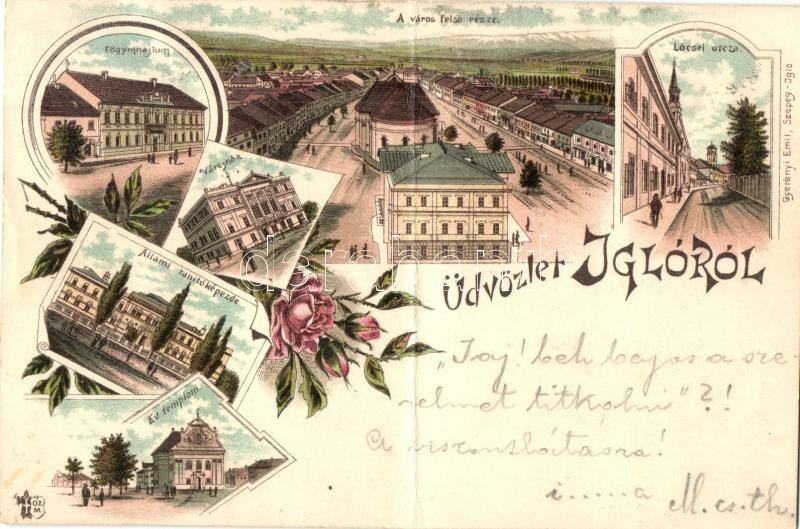 A város felső része.
Főgymnasium
Lőcsei utcza.
Gyetényi Emil, Szepes-Igló
Városház
Állami tanítóképezde
Üdvözlet IGLÓRÓL
Ev. templom.
„Jaj! beh bajos a sze-
relmet titkolni"?!
A viszontlátásra!
M. cs. th.
OZ
M.